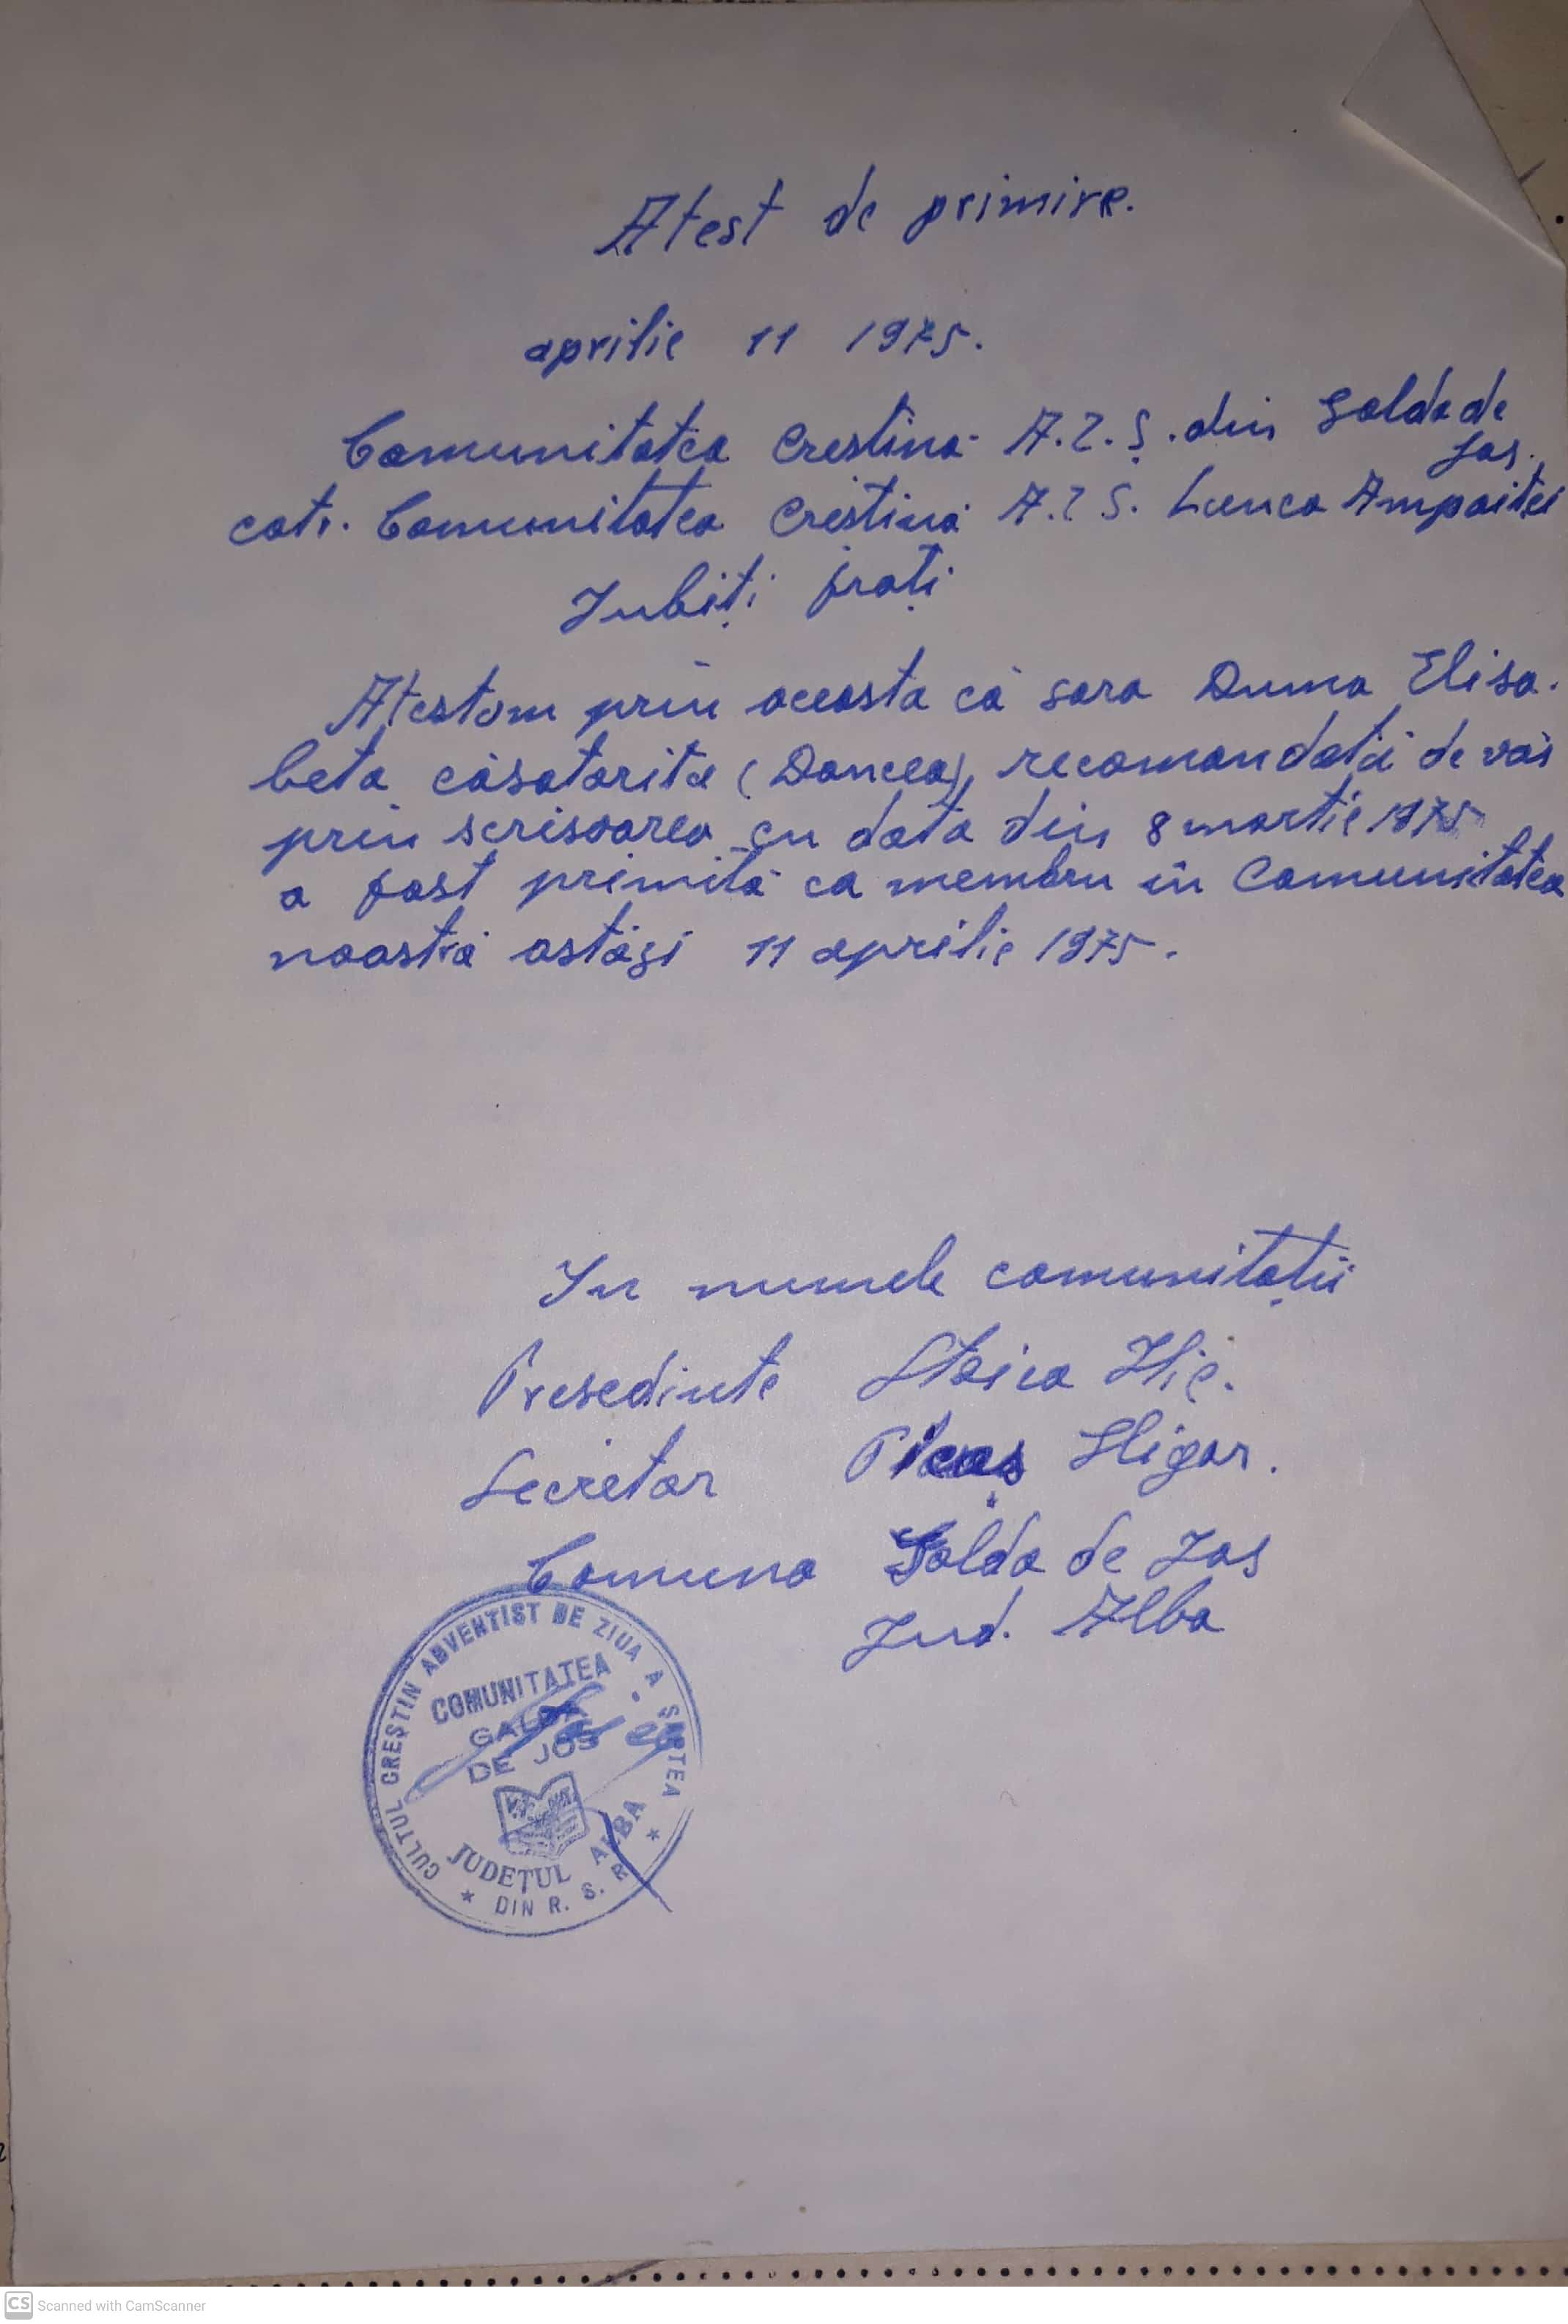 Atest de primire.
aprilie 11 1975.
Comunitatea Crestină A.Z.Ș. din Galda de
Jos.
cotr. Comunitatea Crestină A.Z.S. Lunca Ampoiței
Iubiți frați
Atestam prin aceasta că sora Duma Elisa.
beta căsatorita (Dancea), recomandată de voi
prin scrisoarea cu data din 8 martie 1975
a fost primită ca membru în Comunitatea
noastră astăzi 11 aprilie 1975.
In numele comunitații
Presedinte Stoica Ilie.
Secretar
Comuna Galda de Jos
Jud. Alba
CULTUL CREȘTIN ADVENTIST DE ZIUA A ȘAPTEA
COMUNITATEA
GALDA
DE JOS
JUDEȚUL ALBA
* DIN R. S. R. *
CS Scanned with CamScanner